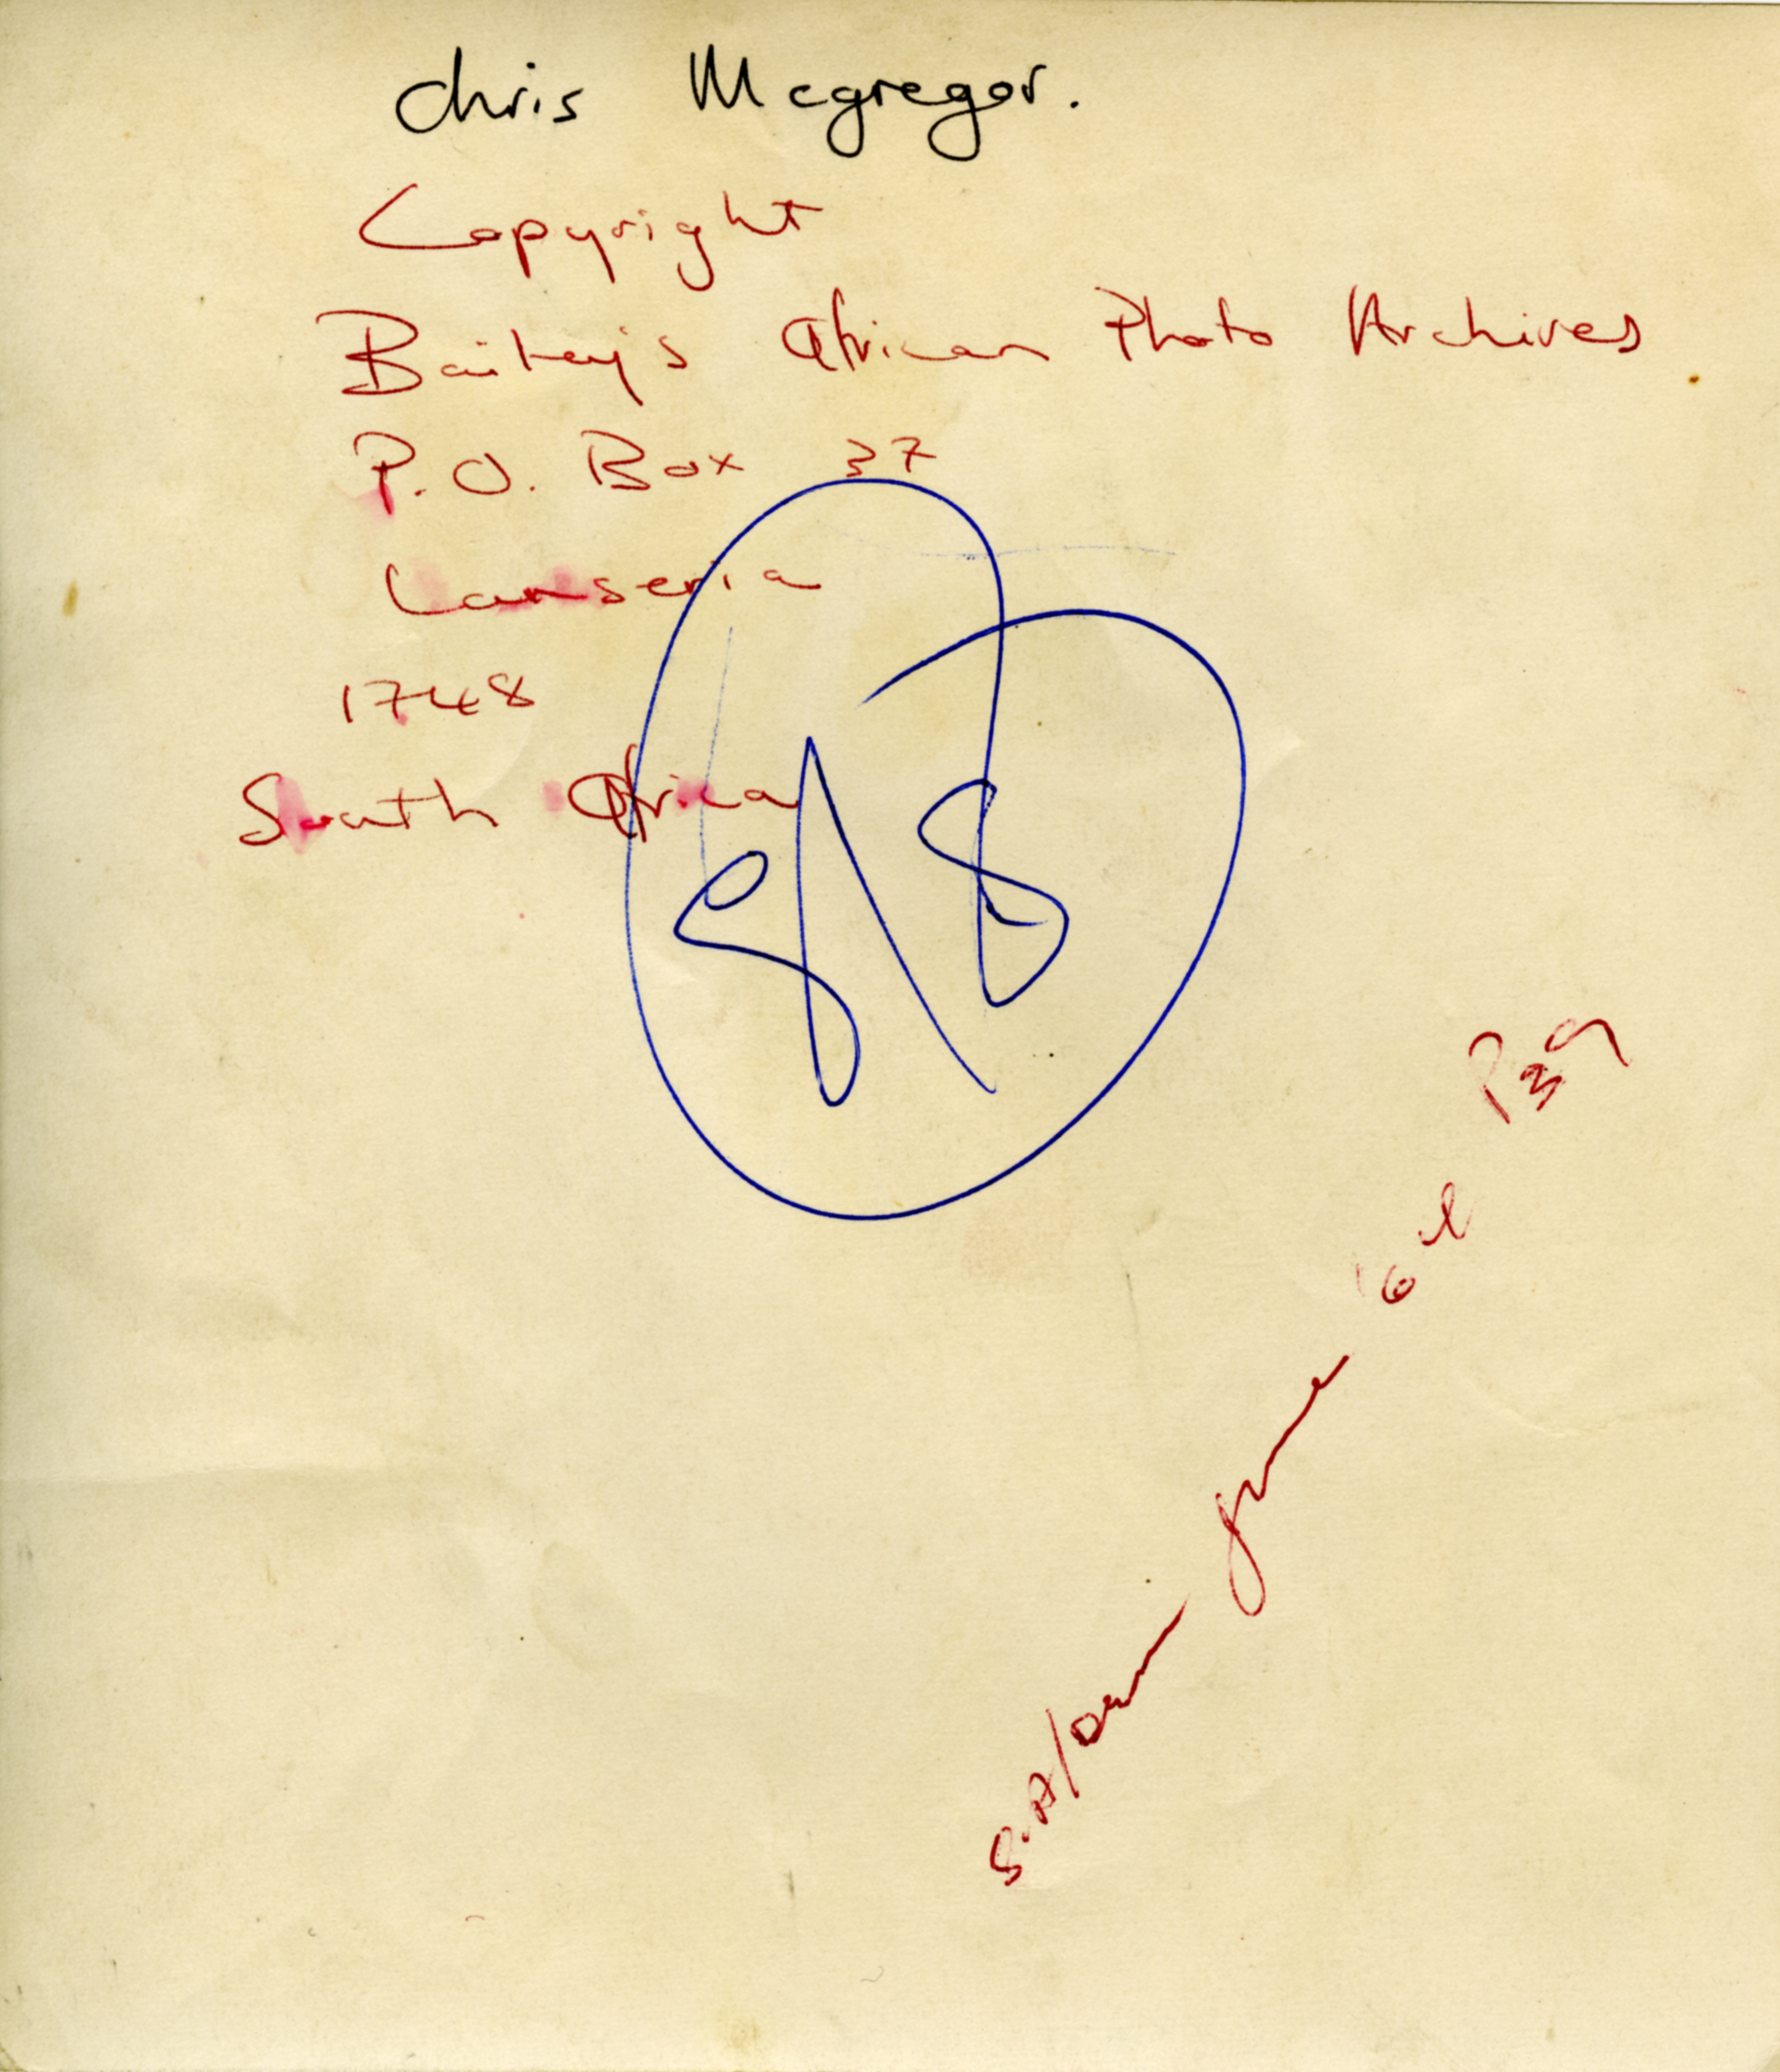 Chris Mcgregor.
Copyright
Bailey's African Photo Archives
P.O. Box 37
Lanseria
1748
South Africa
S.A/Drum June '61 P39